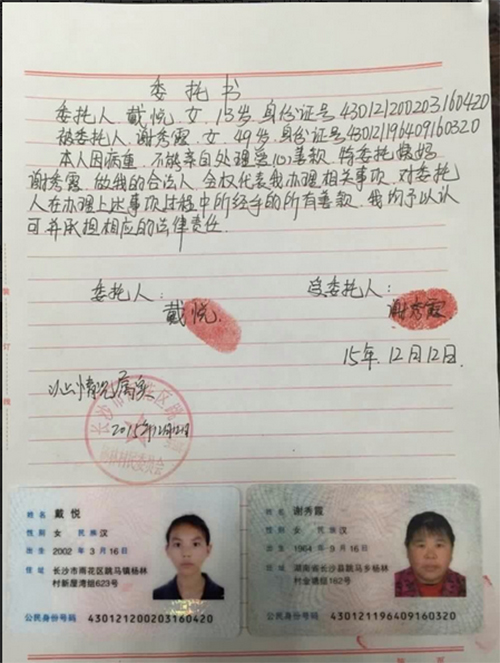 委托书
委托人 戴悦 女 13岁 身份证号430121200203160420
被委托人.谢秀霞.女 49岁.身份证号430121196409160320
本人因病重.不能亲自处理善款.特委托
谢秀霞.做我的合法人.全权代表我办理相关事项.对委托
人在办理上述事项过程中所经手的所有善款.我均予以认
可并承担相应的法律责任.
委托人: 受委托人:
戴悦. 谢秀霞
15年.12月12日.
以上情况属实
长沙市 花区
2015年12月12日
林村民委员会
姓名 戴悦
性别 女 民族 汉
出生 2002 年 3 月 16 日
住址 长沙市雨花区跳马镇杨林
村新屋湾组623号
公民身份号码 430121200203160420
姓名 谢秀霞
性别 女 民族 汉
出生 1964 年 9 月 16 日
住址 湖南省长沙县跳马乡杨林
村金塘组162号
公民身份号码 430121196409160320